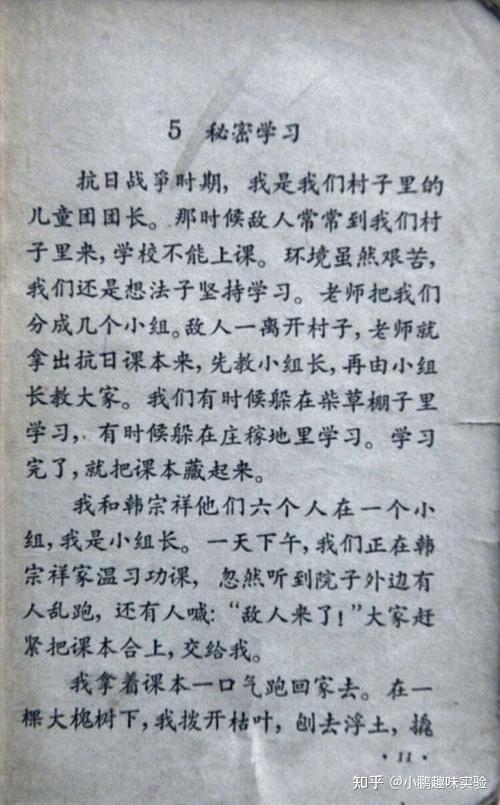 5 秘密学习
抗日战争时期，我是我们村子里的
儿童团团长。那时候敌人常常到我们村
子里来，学校不能上课。环境虽然艰苦，
我们还是想法子坚持学习。老师把我们
分成几个小组。敌人一离开村子，老师就
拿出抗日课本来，先教小组长，再由小组
长教大家。我们有时候躲在柴草棚子里
学习，有时候躲在庄稼地里学习。学习
完了，就把课本藏起来。
我和韩宗祥他们六个人在一个小
组，我是小组长。一天下午，我们正在韩
宗祥家温习功课，忽然听到院子外边有
人乱跑，还有人喊：“敌人来了！”大家赶
紧把课本合上，交给我。
我拿着课本一口气跑回家去。在一
棵大槐树下，我拨开枯叶，刨去浮土，撬
·11·
知乎 @小鹏趣味实验